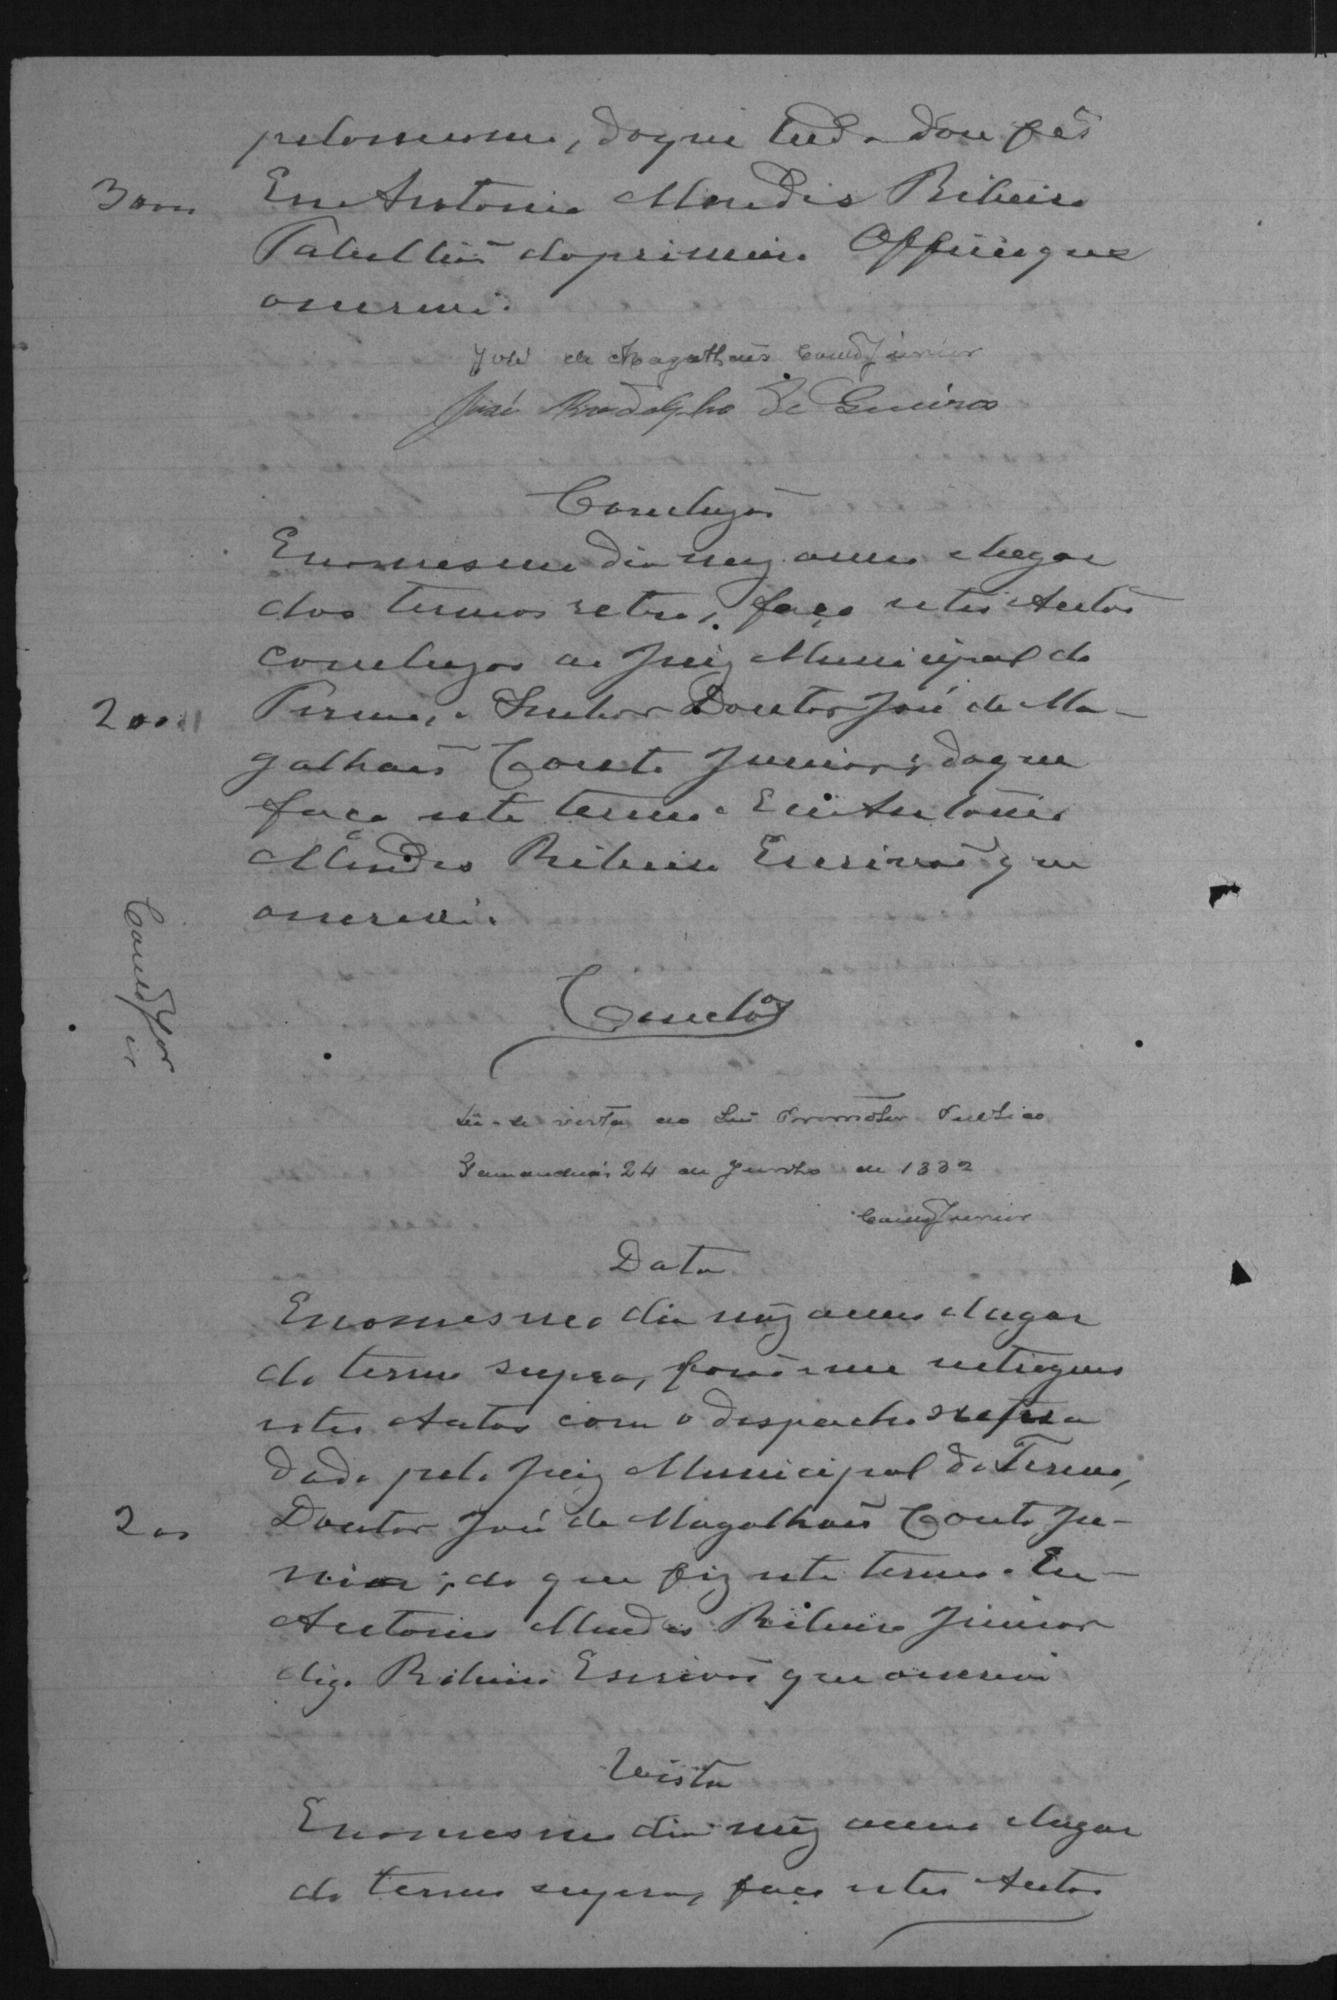 pelo mesmo, do que tudo dou fé
3000 Eu Antonio Mendes Ribeiro
Tabellião do primeiro Officio que
o escrevi.
José de Magalhães Couto Junior
José Rodolpho de
Concluzão
E no mesmo dia mez anno e lugar
dos termos retro, faço estes Autos
concluzos ao Juiz Municipal do
200 Termo, o Senhor Doutor José de Ma-
galhães Couto Junior; do que
faço este termo. Eu Antonio
Mendes Ribeiro Escrivão que
o escrevi.
Couto Jor
Conclos
Dê-se vista ao Snr Promotor Publico
24 de Junho de 1882
Couto Junior
Data
E no mesmo dia mez anno e lugar
do termo supra, forão me entregues
estes Autos com o despacho
dado pelo Juiz Municipal do Termo,
200 Doutor José de Magalhães Couto Ju-
nior; do que fiz este termo. Eu
Antonio Mendes Ribeiro Junior
digo Ribeiro Escrivão que o escrevi
Vista
E no mesmo dia mez anno e lugar
do termo supra, faço estes Autos